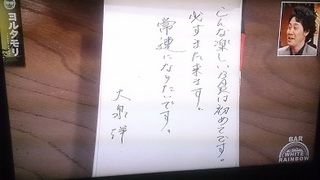 ヨルタモリ
こんな楽しい夜は初めてです。
必ずまた来ます。
常連になりたいです。
大泉洋
BAR
WHITE
RAINBOW